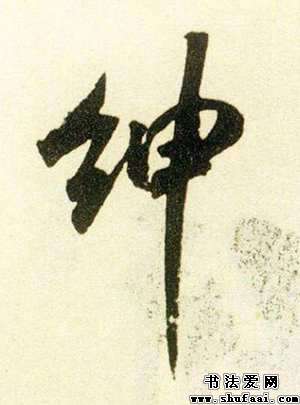 紳
书法爱网
www.shufaai.com